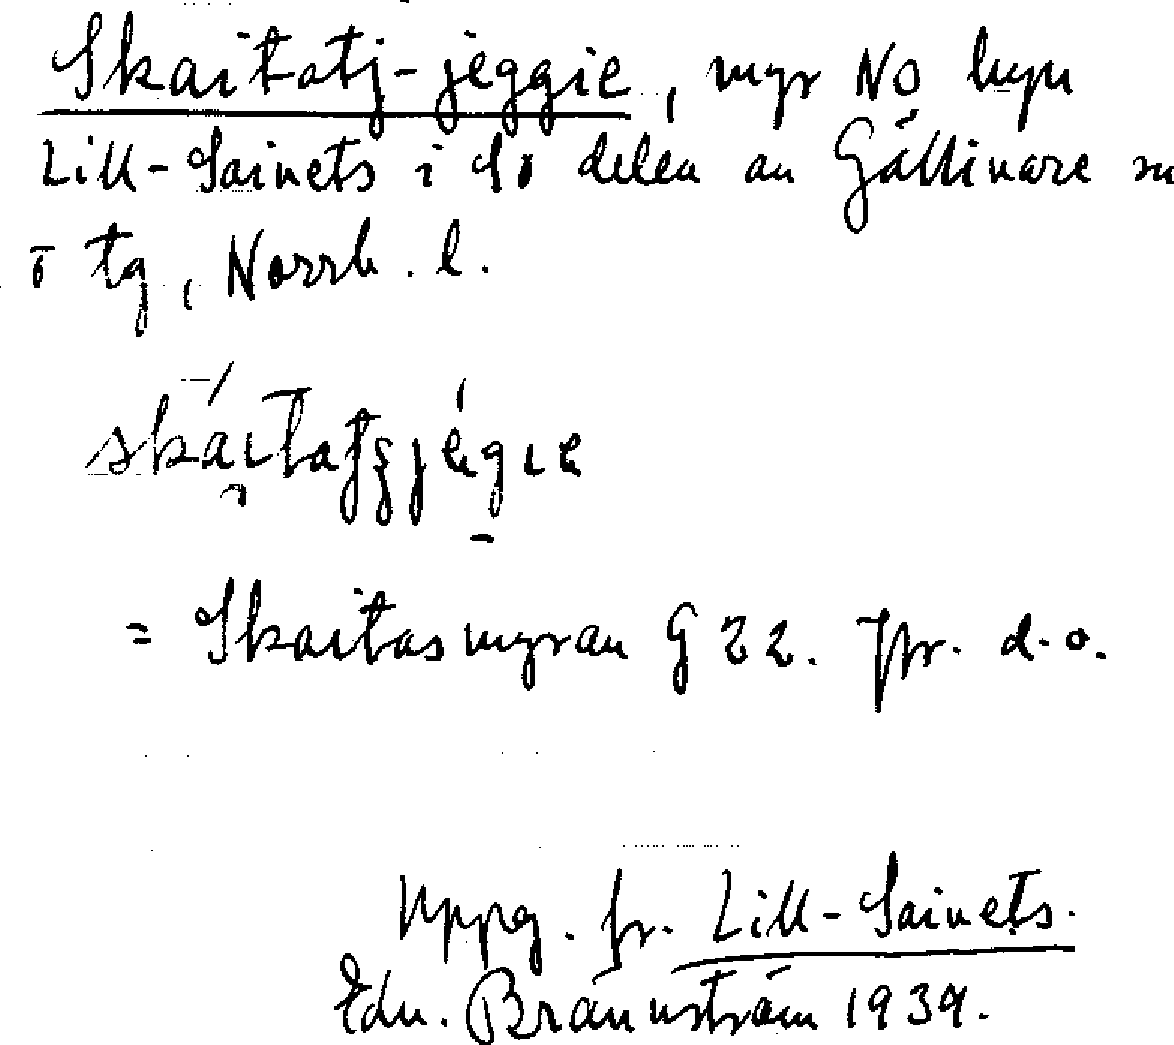 Skaitatj-jeggie, myr NO byn
Lill-Sainets i So delen av Gällivare sn
o tg, Norrb. l.
skáitatʒjégie
= Skaitasmyran G 22. Jfr. d.o.
Uppg. fr. Lill-Sainets.
Edv. Brännström 1939.